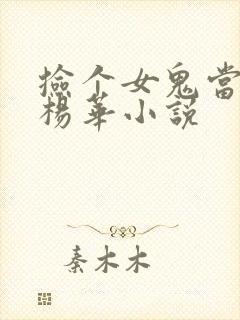 撿个女鬼當
楊華小説
秦木木